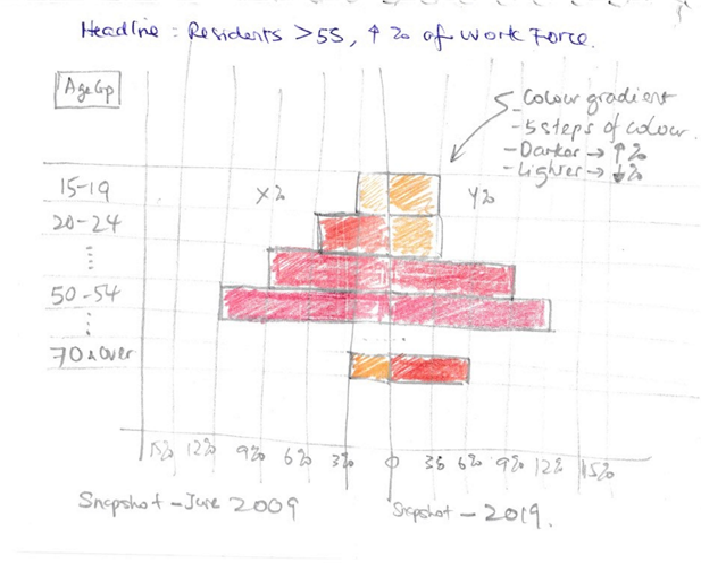 Headline : Residents >55, ↑ % of Work Force.
Age Gp
Colour gradient
- 5 steps of colour.
- Darker → ↑ %
- Lighter → ↓ %
15-19 X% Y%
20-24
50-54
70 & Over
15% 12% 9% 6% 3% 0 3% 6% 9% 12% 15%
Snapshot - June 2009
Snapshot - 2019.